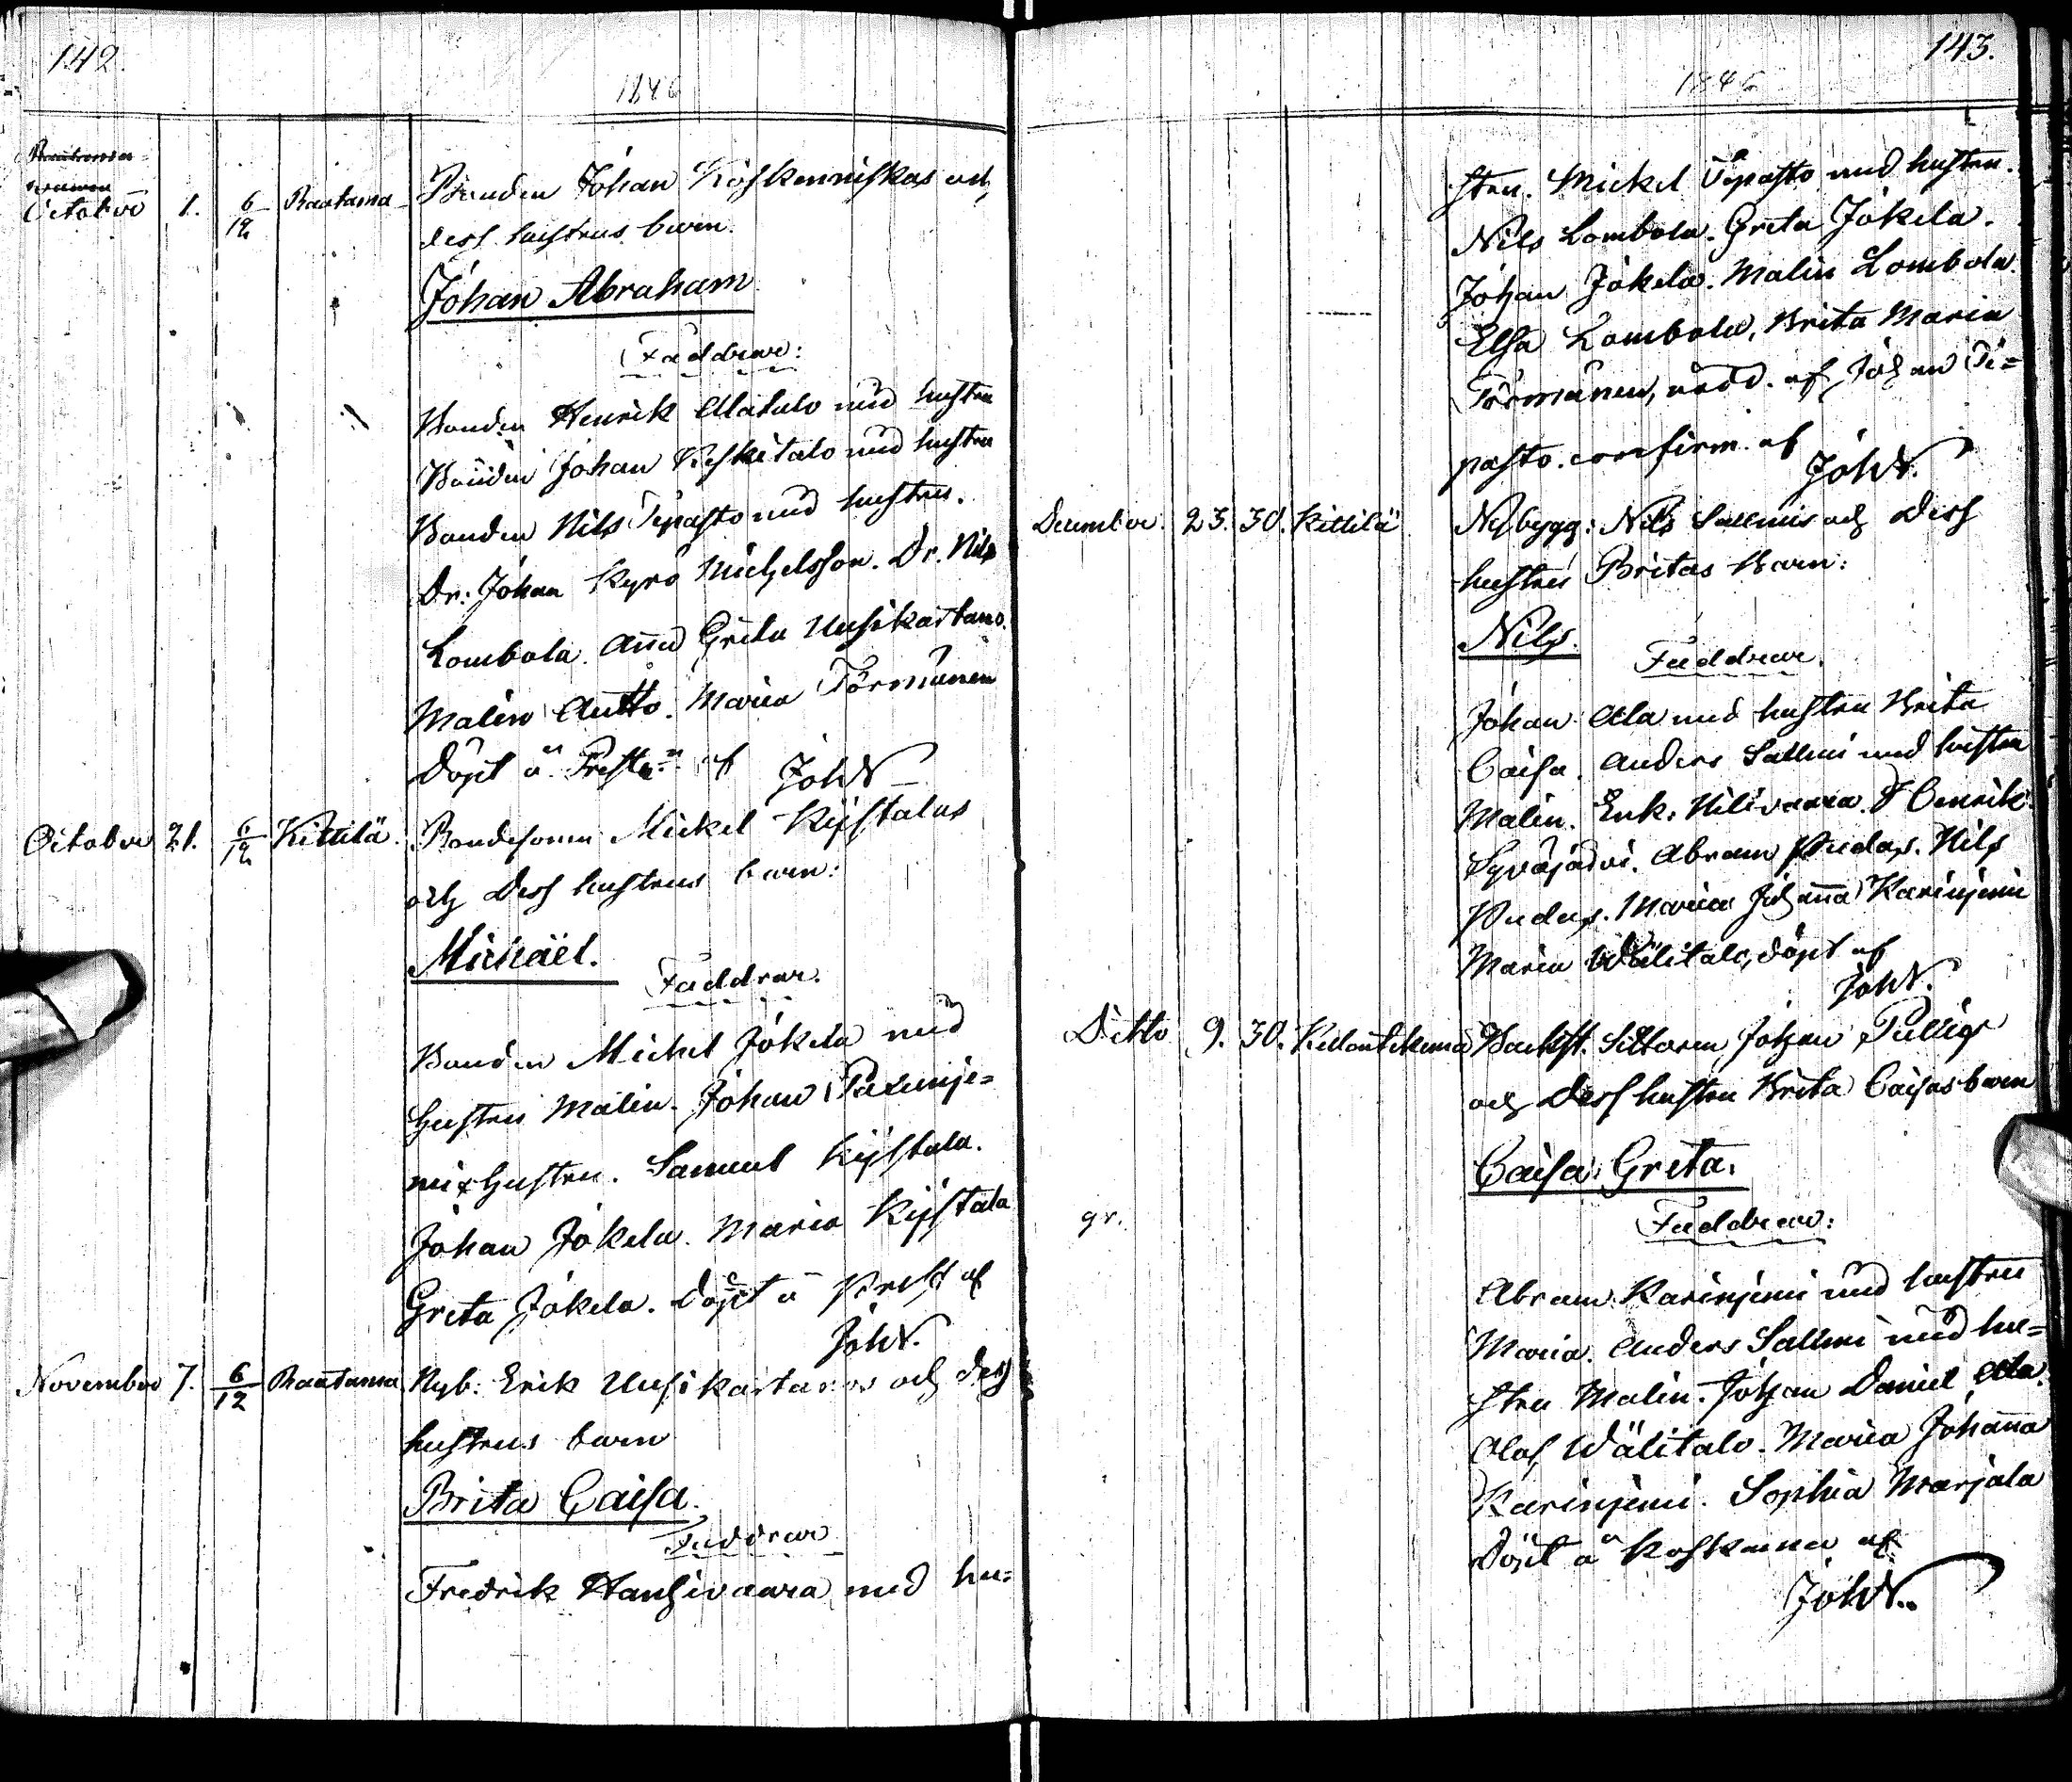 142.
1846
October 1. 6/12 Rautama Bonden Johan Koskenniskas och
dess hustrus barn.
Johan Abraham
Faddrar:
Bonden Henrik Alatalo med hustru
Bonden Johan Keskitalo med hustru
Bonden Nils Tepasto med hustru.
Dr: Johan Kyrö Michelsson. Dr. Nils
Lombola. Anna Greta Uusikartano.
Malin Autto. Maria Törmänen
döpt å Prestg: af JohW
October 21. 6/12 Kittilä. Bondesonen Mickel Kijstalas
och dess hustrus barn:
Michäel.
Faddrar.
Bonden Michel Jokela med
hustru Malin. Johan
hustru. Samuel Kijstala.
Johan Jokela. Maria Kijstala
Greta Jokela. döpt å Prestg af
JohW.
November 7. 6/12 Rautama Nyb: Erik Uusikartanos och dess
hustrus barn
Brita Caisa.
Faddrar
Fredrik Hansivaara med hu=
143.
1846
stru. Mickel Tepasto med hustru.
Nils Lombola. Greta Jokela.
Johan Jokela. Malin Lombola.
Elsa Lombola, Brita Maria
Törmänen, nödd. af Johan Te=
pasto. confirm. af
JohW.
December. 23. 30. Kittilä Nybygg: Nils Sallmis och dess
hustrus Britas barn:
Nils.
Faddrar.
Johan Ala med hustru Brita
Caisa. Anders Sallmi med hustru
Malin. Enk: Nilivaara. Henrik
Syväjärvi. Abram Pudas. Nils
Pudas. Maria Johanna Karinjemi
Maria Wälitalo, döpt af
JohW.
Ditto 9. 30. Johan
och dess hustru Brita Caisas barn
Caisa Greta.
Faddrar:
gr.
Abram Karinjemi med hustru
Maria. Anders Sallmi med hu=
stru Malin. Johan Daniel Ala.
Olof Wälitalo. Maria Johanna
Karinjemi. Sophia Marjala
Döpt å Koskama af
JohW..